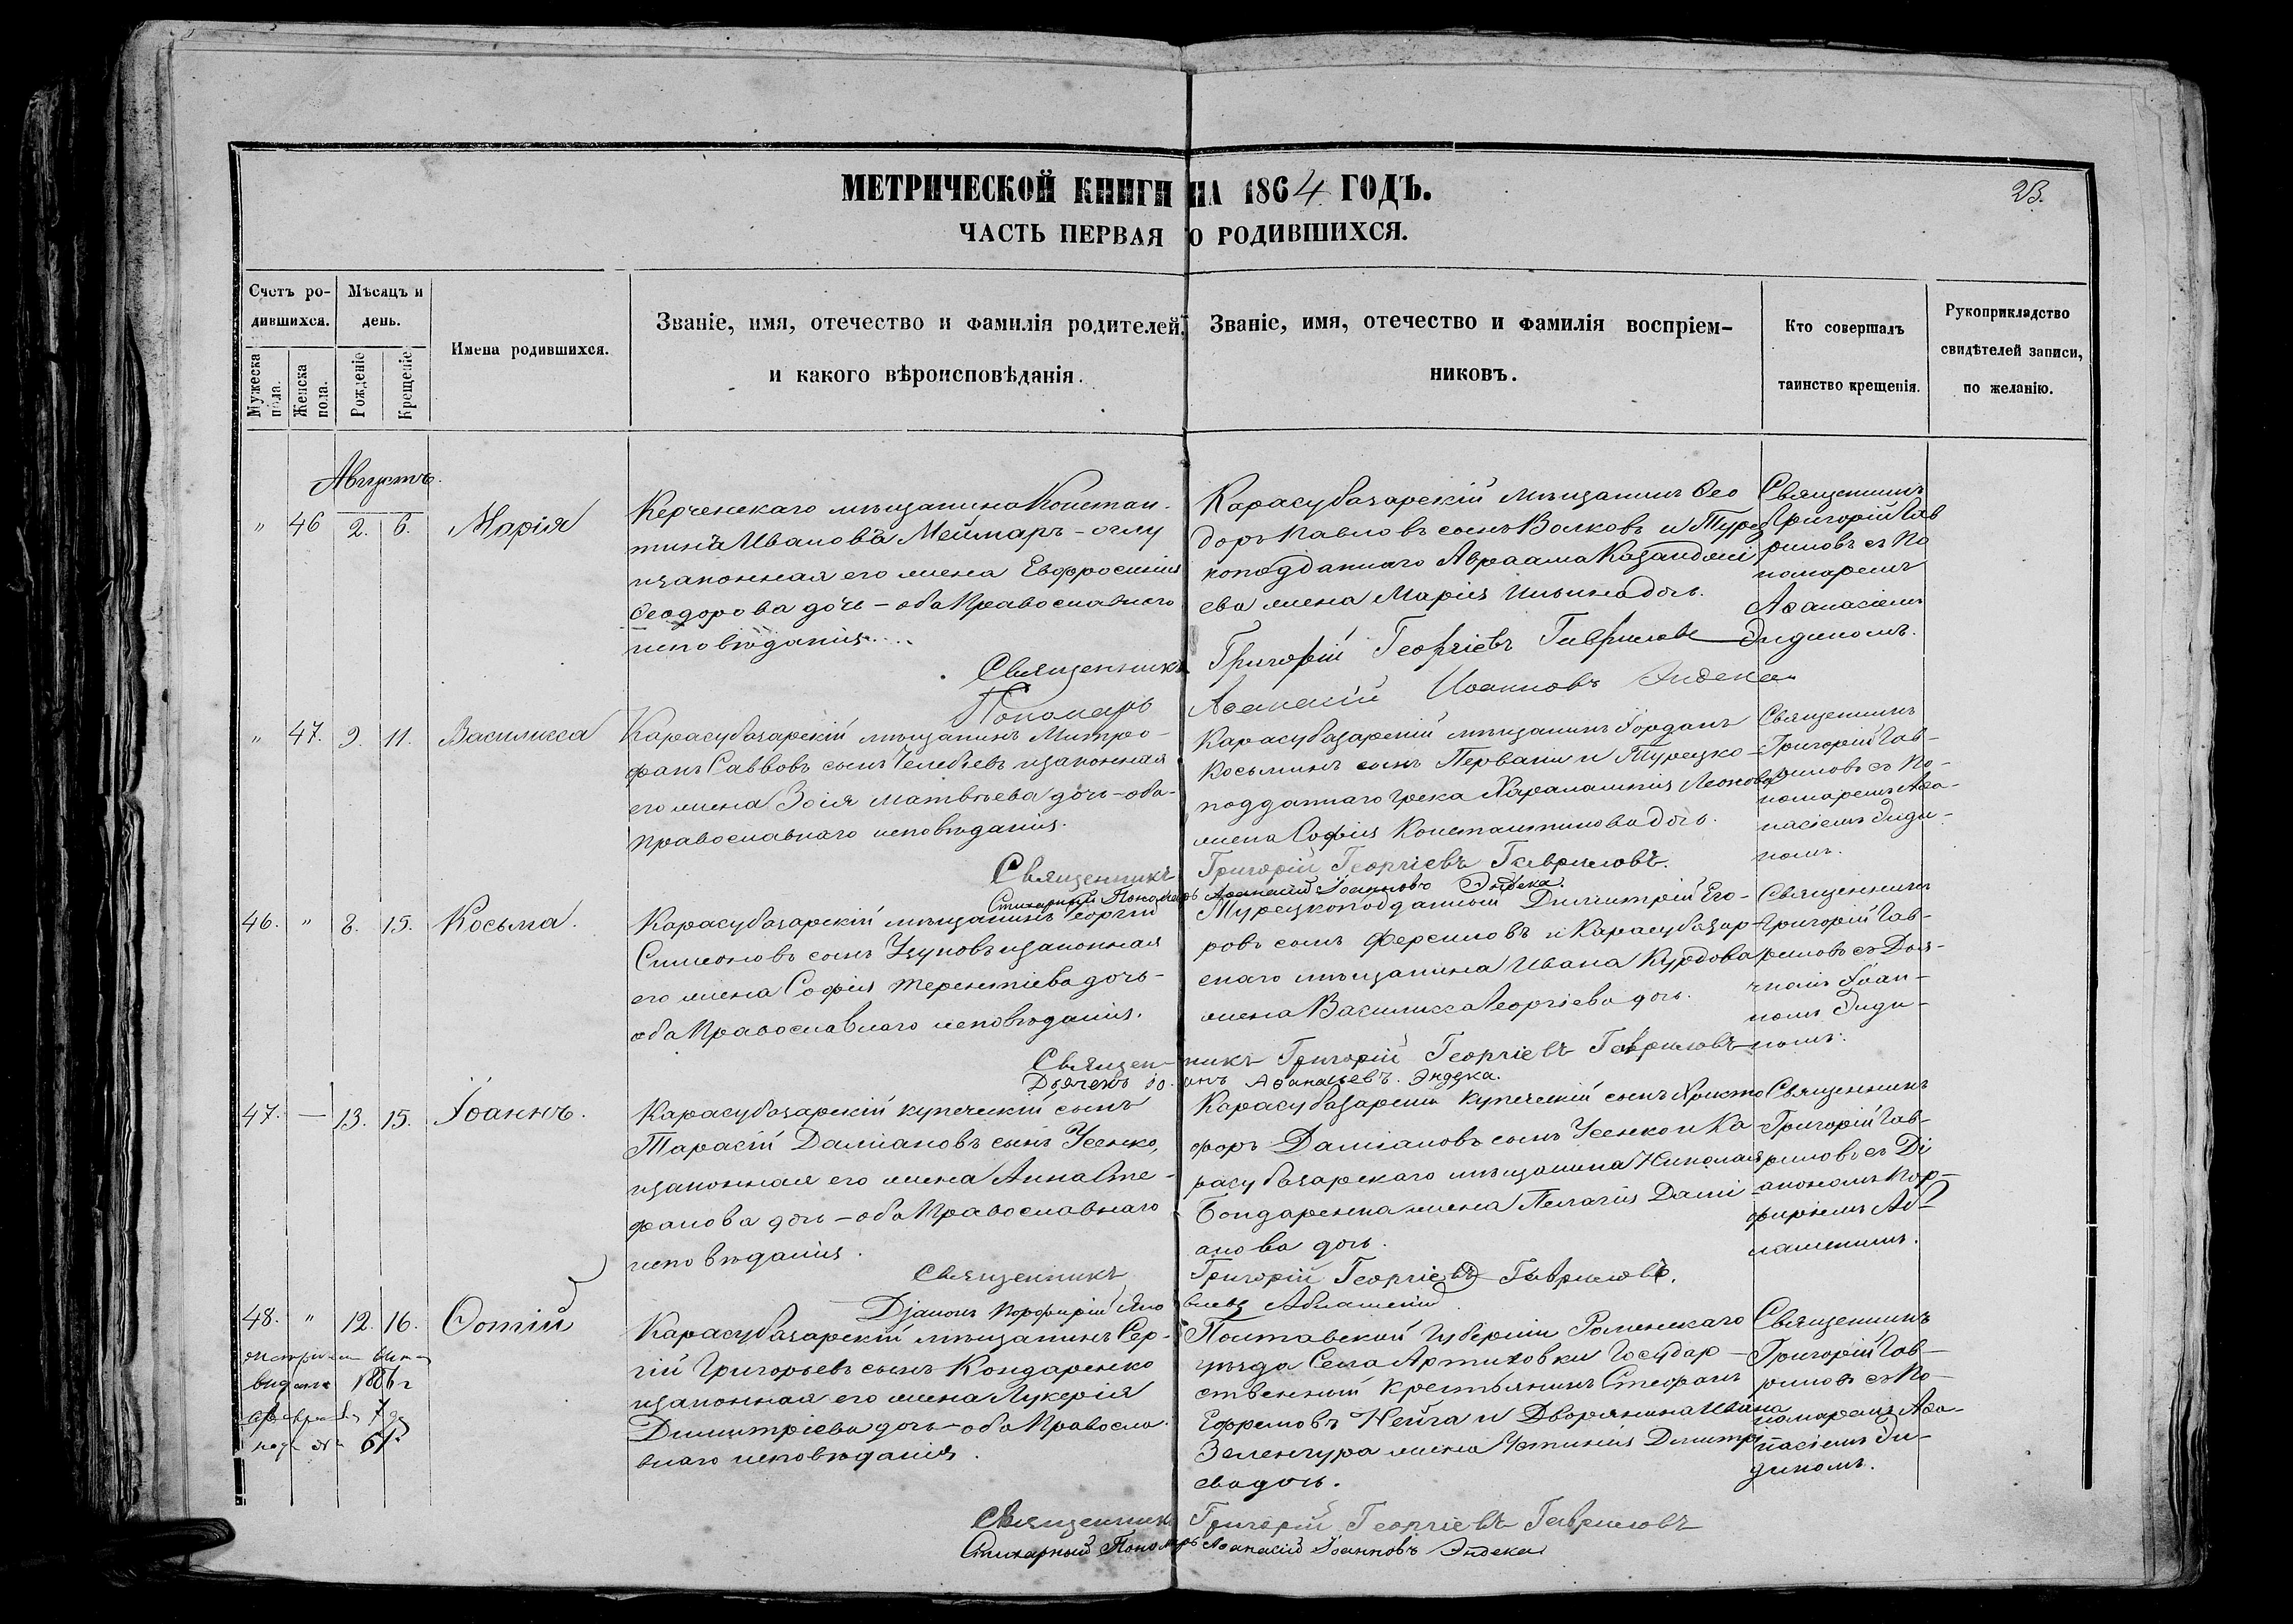 МЕТРИЧЕСКОЙ КНИГИ НА 1864 ГОДЪ.
23.
ЧАСТЬ ПЕРВАЯ О РОДИВШИХСЯ.
Счетъ ро-
дившихся.
Мужеска пола.
Женска пола.
Мѣсяцъ и
день.
Рожденіе
Крещеніе
Имена родившихся.
Званіе, имя, отечество и фамилія родителей,
и какого вѣроисповѣданія.
Званіе, имя, отечество и фамилія воспріем-
никовъ.
Кто совершалъ
таинство крещенія.
Рукоприкладство
свидѣтелей записи,
по желанію.
Августъ.
" 46 2. 6. Марія
Керченскаго мѣщанина Констан-
тина Иванова Меймаръ-оглу
изаконная его жена Евфросинія
Ѳеодорова дочь - оба Православнаго
исповѣданія.
Карасубазарскій мѣщанинъ Ѳео
доръ Павловъ сынъ Волковъ и Турец
коподданнаго Авраама Казанджи
ева жена Марія Ильина дочь.
Священникъ
Григорій Гав
риловъ съ По
номаремъ
Аѳанасіемъ
Эндекомъ.
Священникъ Григорій Георгіевъ Гавриловъ
Пономарь Аѳанасій Иоанновъ Эндека
" 47. 9. 11. Василисса
Карасубазарскій мѣщанинъ Митро-
фанъ Саввовъ сынъ Челебіевъ изаконная
его жена Зоія Матвѣева дочь - оба
православнаго исповѣданія.
Карасубазарскій мѣщанинъ Іорданъ
Косьминъ сынъ и Турецко-
подданнаго Грека Харалампія Леонова
жена Софія Константинова дочь.
Священникъ
Григорій Гав-
риловъ съ По-
номаремъ Аѳа-
насіемъ Энде-
комъ.
Священникъ Григорій Георгіевъ Гавриловъ.
Стихарный Пономарь Аѳанасій Іоанновъ Эндека.
46. " 8. 15. Косьма.
Карасубазарскій мѣщанинъ Георгій
Симеоновъ сынъ Узуновъ изаконная
его жена Софія Терентіева дочь -
оба Православнаго исповѣданія.
Турецкоподданный Димитрій Его-
ровъ сынъ Ферсиловъ и Карасубазар-
скаго мѣщанина Ивана Курдова
жена Василисса Георгіева дочь.
Священникъ
Григорій Гав-
риловъ съ Дья-
чкомъ Іоан-
номъ Энде-
комъ.
Священникъ Григорій Георгіевъ Гавриловъ
Дьячекъ Іоаннъ Аѳанасьевъ. Эндека.
47. — 13. 15. Іоаннъ.
Карасубазарскій купеческій сынъ
Тарасій Даміановъ сынъ Усенко,
изаконная его жена Анна Сте-
фанова дочь - оба Православнаго
исповѣданія.
Карасубазарскій купеческій сынъ Христо
форъ Даміановъ сынъ Усенко и Ка-
расубазарскаго мѣщанина Николая
Бондаренка жена Пелагія Дамі-
анова дочь.
Священникъ
Григорій Гав-
риловъ съ Ді
акономъ Пор-
фиріемъ Аб-
лашенимъ.
Священникъ Григорій Георгіевъ Гавриловъ.
Діаконъ Порфирій
48. " 12. 16. Ѳотій
Карасубазарскій мѣщанинъ Сер-
гій Григорьевъ сынъ Кондаренко
изаконная его жена Лукерія
Димитріева дочь - оба Правосла-
внаго исповѣданія.
Полтавской Губерніи Роменскаго
уѣзда Села Артиховки Государ-
ственный крестьянинъ Стефанъ
Ефремовъ Нейга и Дворянина Ивана
Зеленгура жена Устинія Димитрі
ева дочь.
Священникъ
Григорій Гав-
риловъ съ По-
номаремъ Аѳа-
насіемъ Эн-
декомъ.
выдана 1886 г
февраля 7 д
подъ № 61.
Священникъ Григорій Георгіевъ Гавриловъ
Стихарный Пономарь Аѳанасій Іоанновъ Эндека